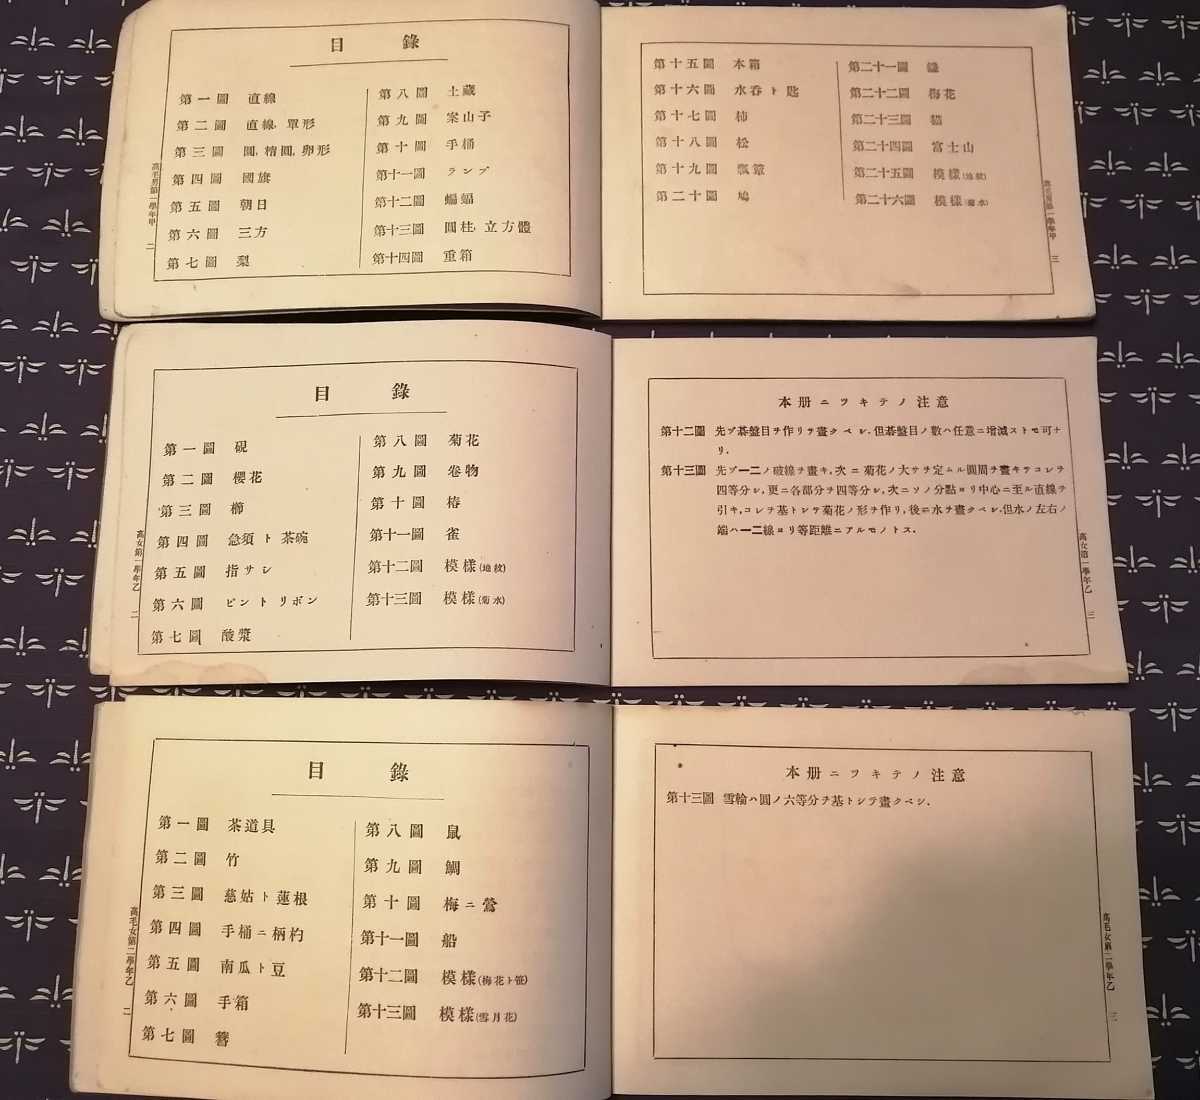 目錄
第一圖 直線
第二圖 直線, 單形
第三圖 圓, 楕圓, 卵形
第四圖 國旗
第五圖 朝日
第六圖 三方
第七圖 梨
第八圖 土藏
第九圖 案山子
第十圖 手桶
第十一圖 ランプ
第十二圖 蝙蝠
第十三圖 圓柱, 立方體
第十四圖 重箱
高毛男第一學年甲 二
第十五圖 本箱
第十六圖 水呑ト匙
第十七圖 柿
第十八圖 松
第十九圖 瓢簞
第二十圖 鳩
第二十一圖
第二十二圖 梅花
第二十三圖 貓
第二十四圖 富士山
第二十五圖 模樣(地紋)
第二十六圖 模樣(菊水)
高毛男第一學年甲 三
目錄
第一圖 硯
第二圖 櫻花
第三圖 曛
第四圖 急須ト茶碗
第五圖 指サシ
第六圖 ピントリボン
第七圖 酸漿
第八圖 菊花
第九圖 卷物
第十圖 椿
第十一圖 雀
第十二圖 模樣(地紋)
第十三圖 模樣(菊水)
高女第一學年乙 二
本册ニツキテノ注意
第十二圖 先ヅ碁盤目ヲ作リテ畫クベシ.但碁盤目ノ數ハ任意ニ增減ストモ可ナ
リ.
第十三圖 先ヅ一二ノ破線ヲ畫キ,次ニ菊花ノ大サヲ定ムル圓周ヲ畫キテコレヲ
四等分シ,更ニ各部分ヲ四等分シ,次ニソノ分點ヨリ中心ニ至ル直線ヲ
引キ,コレヲ基トシテ菊花ノ形ヲ作リ,後ニ水ヲ畫クベシ.但水ノ左右ノ
端ハ一二線ヨリ等距離ニアルモノトス.
高女第一學年乙 三
目錄
第一圖 茶道具
第二圖 竹
第三圖 慈姑ト蓮根
第四圖 手桶ニ柄杓
第五圖 南瓜ト豆
第六圖 手箱
第七圖 簪
第八圖 鼠
第九圖 鯛
第十圖 梅ニ鶯
第十一圖 船
第十二圖 模樣(梅花ト笹)
第十三圖 模樣(雪月花)
高毛女第二學年乙 二
本册ニツキテノ注意
第十三圖 雪輪ハ圓ノ六等分ヲ基トシテ畫クベシ.
高毛女第二學年乙 三